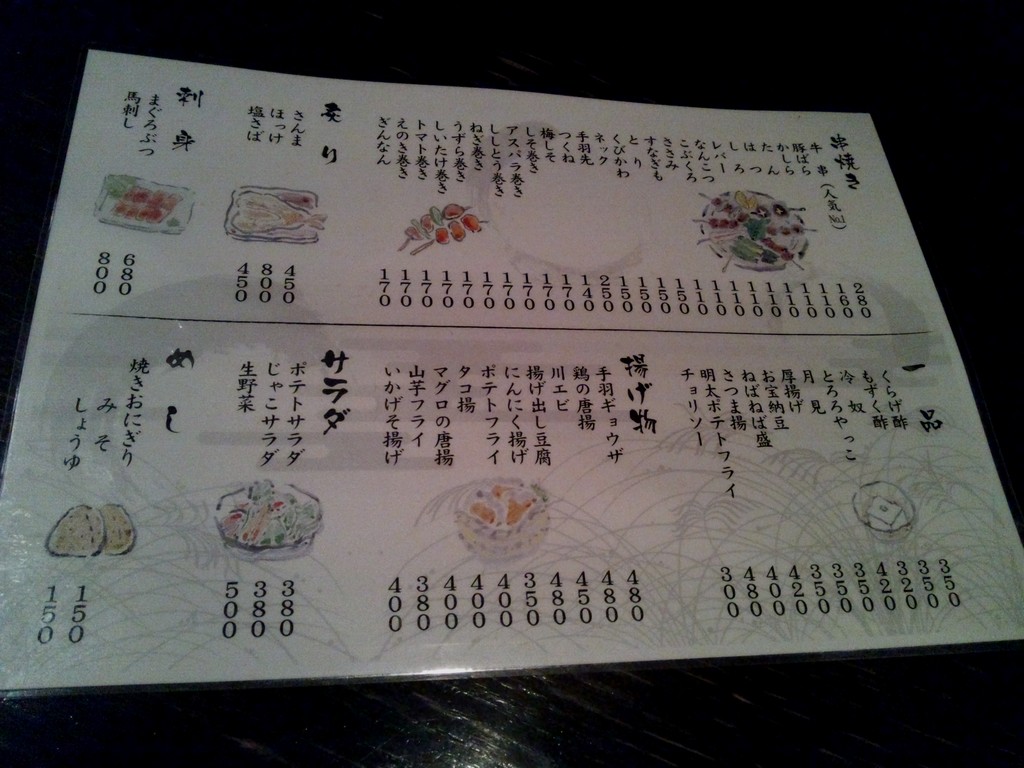 串焼き
牛串(人気No.1) 280
豚ばら 160
かしら 110
たん 110
はつ 110
しろ 110
レバー 110
なんこつ 110
こぶくろ 110
ささみ 110
すなぎも 150
とり 150
くびかわ 150
ネック 150
手羽先 250
つくね 140
梅しそ 170
しそ巻き 170
アスパラ巻き 170
ししとう巻き 170
ねぎ巻き 170
うずら巻き 170
しいたけ巻き 170
トマト巻き 170
えのき巻き 170
ぎんなん 170
炙り
さんま 450
ほっけ 800
塩さば 450
刺身
まぐろぶつ 680
馬刺し 800
一品
くらげ酢 350
もずく酢 350
冷奴 320
とろろやっこ 420
月見 350
厚揚げ 350
お宝納豆 350
ねばねば盛 420
さつま揚 400
明太ポテトフライ 480
チョリソー 300
揚げ物
手羽ギョウザ 480
鶏の唐揚 480
川エビ 450
揚げ出し豆腐 480
にんにく揚げ 350
ポテトフライ 400
タコ揚 400
マグロの唐揚 400
山芋フライ 380
いかげそ揚げ 400
サラダ
ポテトサラダ 380
じゃこサラダ 380
生野菜 500
めし
焼きおにぎり
みそ 150
しょうゆ 150